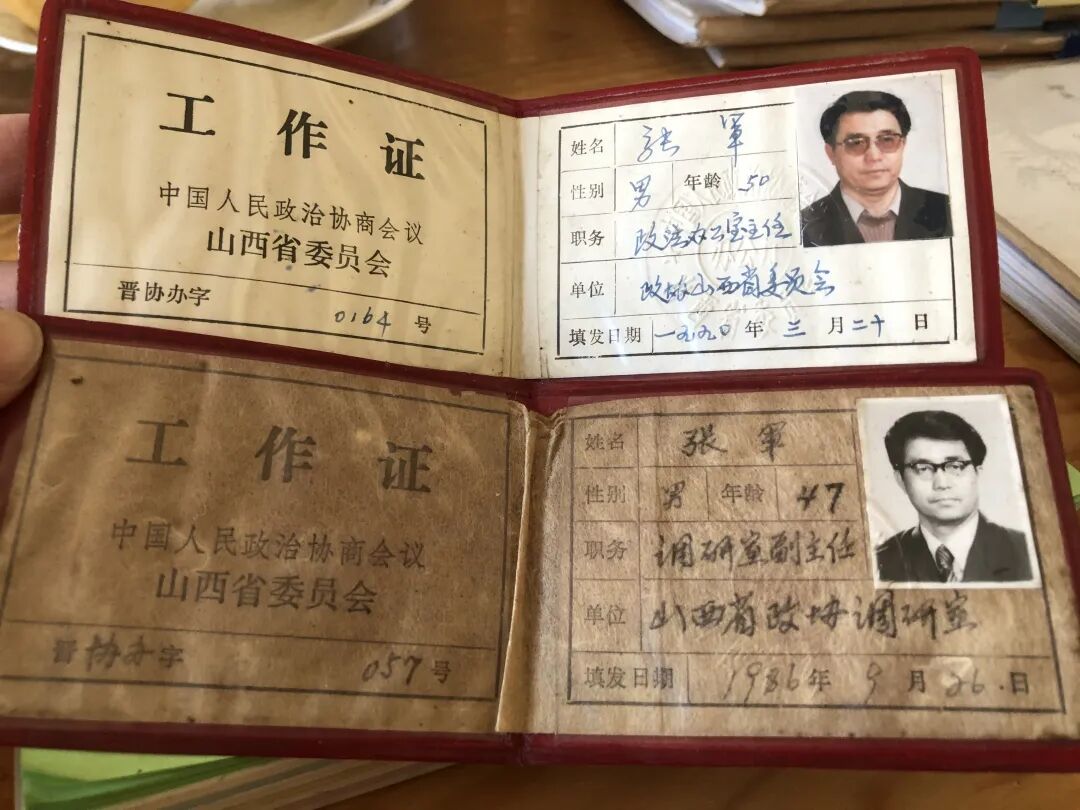 工作证
中国人民政治协商会议
山西省委员会
晋协办字 0164 号
姓名 张军
性别 男 年龄 50
职务 政法办公室主任
单位 政协山西省委员会
填发日期 一九九〇年 三 月 二十 日
工作证
中国人民政治协商会议
山西省委员会
晋协办字 057 号
姓名 张军
性别 男 年龄 47
职务 调研室副主任
单位 山西省政协调研室
填发日期 1986年 9 月 26 日